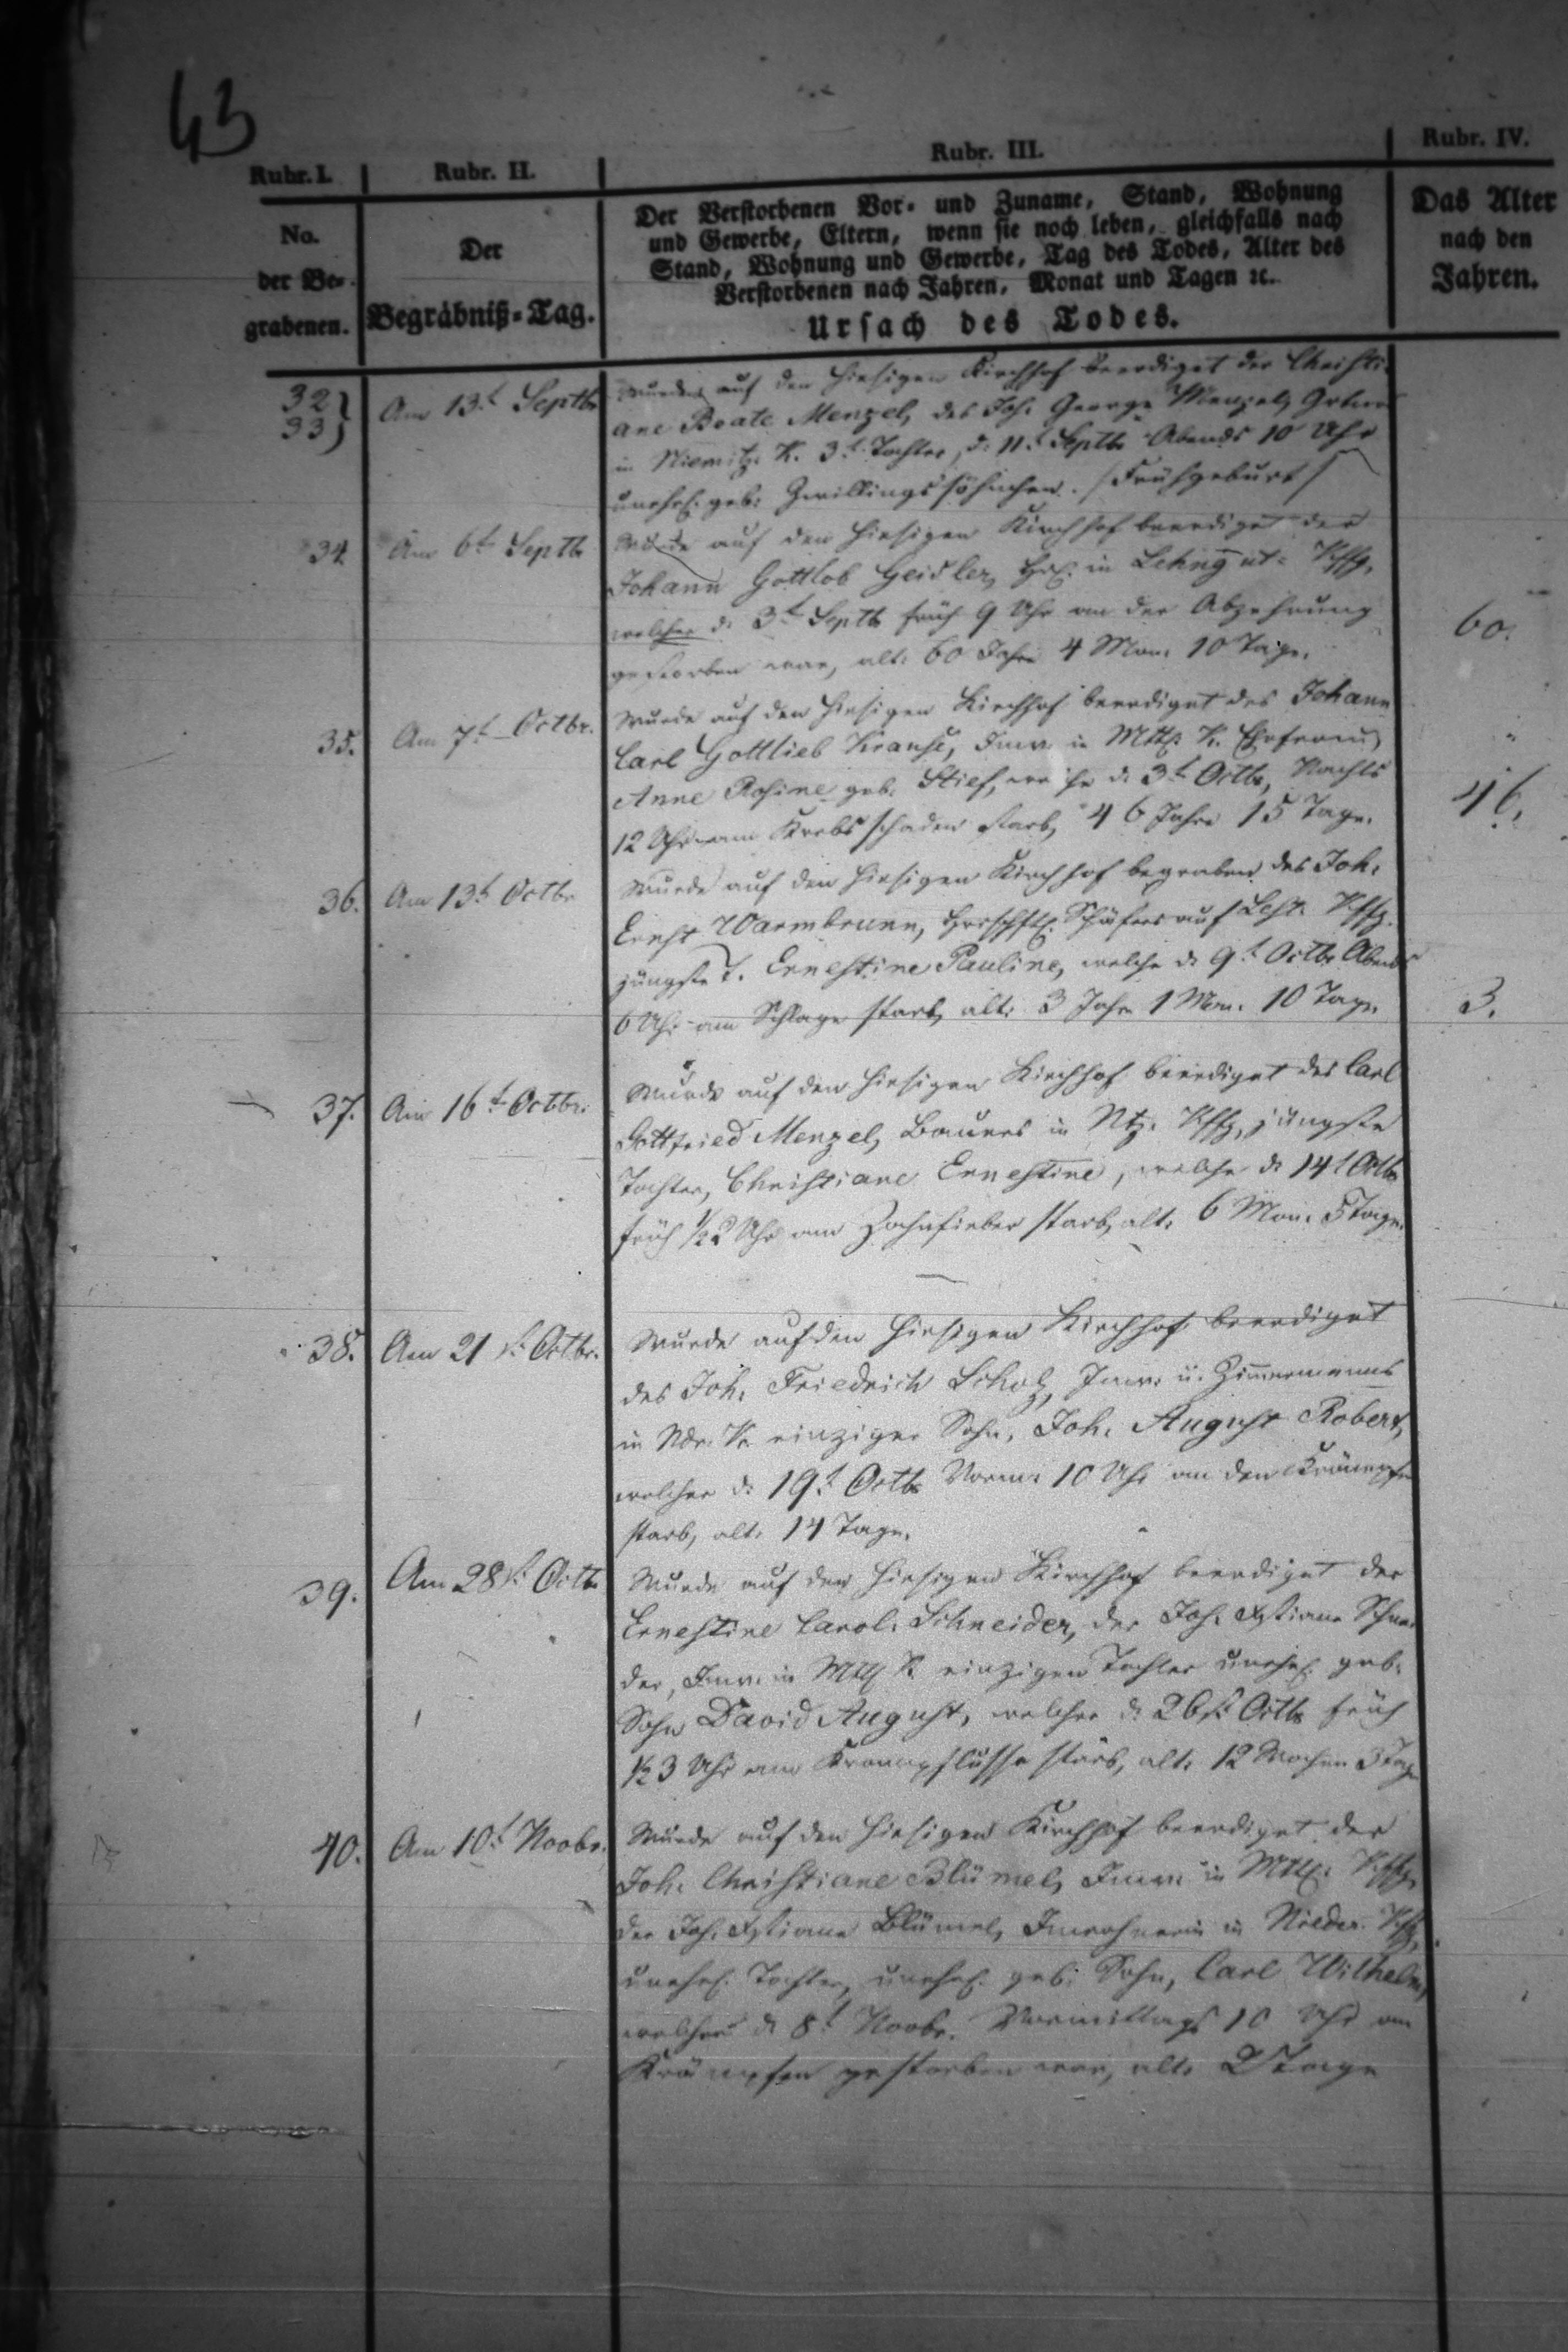 43
Rubr. I.
Rubr. II.
Rubr. III.
Rubr. IV.
No.
der Be-
grabenen.
Der
Begräbniß-Tag.
Der Verstorbenen Vor- und Zuname, Stand, Wohnung
und Gewerbe, Eltern, wenn sie noch leben, gleichfalls nach
Stand, Wohnung und Gewerbe, Tag des Todes, Alter des
Verstorbenen nach Jahren, Monat und Tagen ꝛc.
Ursach des Todes.
Das Alter
nach den
Jahren.
32
33
Am 13t Septb
wurden auf den hiesigen Kirchhof beerdiget der Christi-
ane Beate Menzel, des Joh. George Menzel,
in K. 3t Tochter, d. 11t Septb Abends 10 Uhr
unehel. geb. Zwillingssöhnchen. /Frühgeburt/
34.
Am 6t Septb
Wurde auf den hiesigen Kirchhof beerdiget der
Johann Gottlob Geidler, in Lehngut-
welcher d. 3t Septb früh 9 Uhr an der Abzehrung
gestorben war, alt. 60 Jahr 4 Mon. 10 Tage.
60.
35.
Am 7t Octbr.
Wurde auf den hiesigen Kirchhof beerdiget des Johann
Carl Gottlieb Krause, Inw. in Mttl. K. Ehefrau,
Anne Rosine geb. Stief, welche d. 3t Octb, Nachts
12 Uhr am Krebsschaden starb, 46 Jahre 15 Tage.
46.
36.
Am 13t Octbr
Wurde auf den hiesigen Kirchhof begraben des Joh.
Ernst Warmbrunn, Schäfers auf
jüngste T. Ernestine Pauline, welche d. 9t Octb. Abends
6 Uhr am Schlage starb, alt. 3 Jahr 1 Mon. 10 Tage.
3.
37.
Am 16t Octbr.
Wurde auf den hiesigen Kirchhof beerdiget des Carl
Gottfried Menzel, Bauers in jüngste
Tochter, Christiane Ernestine, welche d. 14t Octb
früh ½2 Uhr am Zahnfieber starb, alt. 6 Mon. 5 Tage.
38.
Am 21st Octbr.
Wurde auf den hiesigen Kirchhof beerdiget
des Joh. Friedrich Scholz, Inw. u. Zimmermanns
in Ndr. K. einziger Sohn, Joh. August Robert,
welcher d. 19t Octb Vorm. 10 Uhr an den Krämpfen
starb, alt. 14 Tage.
39.
Am 28st Octb
Wurde auf den hiesigen Kirchhof beerdiget der
Ernestine Carol. Schneider, der Joh. Schnei-
der, Inw. in Mttl K. einzigen Tochter unehel. geb.
Sohn David August, welcher d. 26st Octb früh
½3 Uhr am starb, alt. 12 Wochen 3 Tage
40.
Am 10t Novbr.
Wurde auf den hiesigen Kirchhof beerdiget der
Joh. Christiane Blümel, Inw. in Mttl.
der Joh. Blümel, Inwohnerin in Nieder
unehel. Tochter, unehel. geb. Sohn, Carl Wilhelm,
welcher d. 8t Novbr. Vormittags 10 Uhr an
Krämpfen gestorben war, alt. Tage